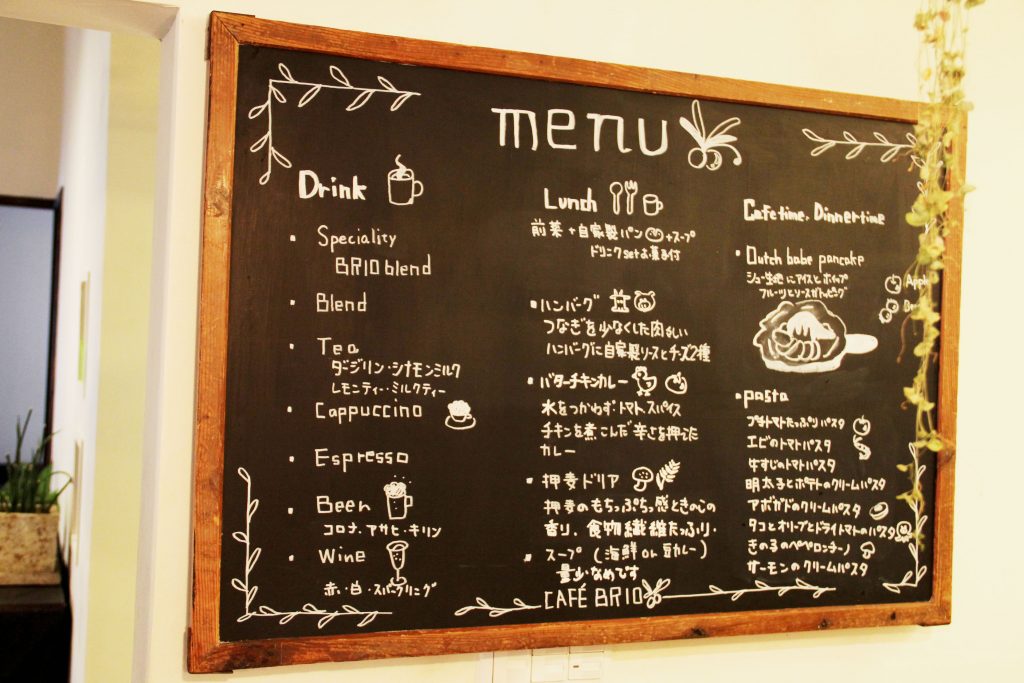 menu
Drink
・Speciality
BRIO blend
・Blend
・Tea
ダージリン・シナモンミルク
レモンティー・ミルクティー
・Cappuccino
・Espresso
・Beer
コロナ、アサヒ・キリン
・Wine
赤・白・スパークリング
Lunch
前菜+自家製パン+スープ
ドリンクsetお菓子付
・ハンバーグ
つなぎを少なくした肉らしい
ハンバーグに自家製ソースとチーズ2種
・バターチキンカレー
水をつかわず、トマト、スパイス
チキンを煮こんだ辛さを押てた
カレー
・押麦ドリア
押麦のもちっぷちっ感ときのこの
香り、食物繊維たっぷり・
・スープ(海鮮 or 豆カレー)
量少なめです
Cafetime. Dinnertime
・Dutch babe pancake
シュー生地にアイスとホイップ
フルーツとソースがトッピング
・pasta
プチトマトたっぷりパスタ
エビのトマトパスタ
牛すじのトマトパスタ
明太子とポテトのクリームパスタ
アボガドのクリームパスタ
タコとオリーブとドライトマトのパスタ
きのこのペペロンチーノ
サーモンのクリームパスタ
CAFÉ BRIO